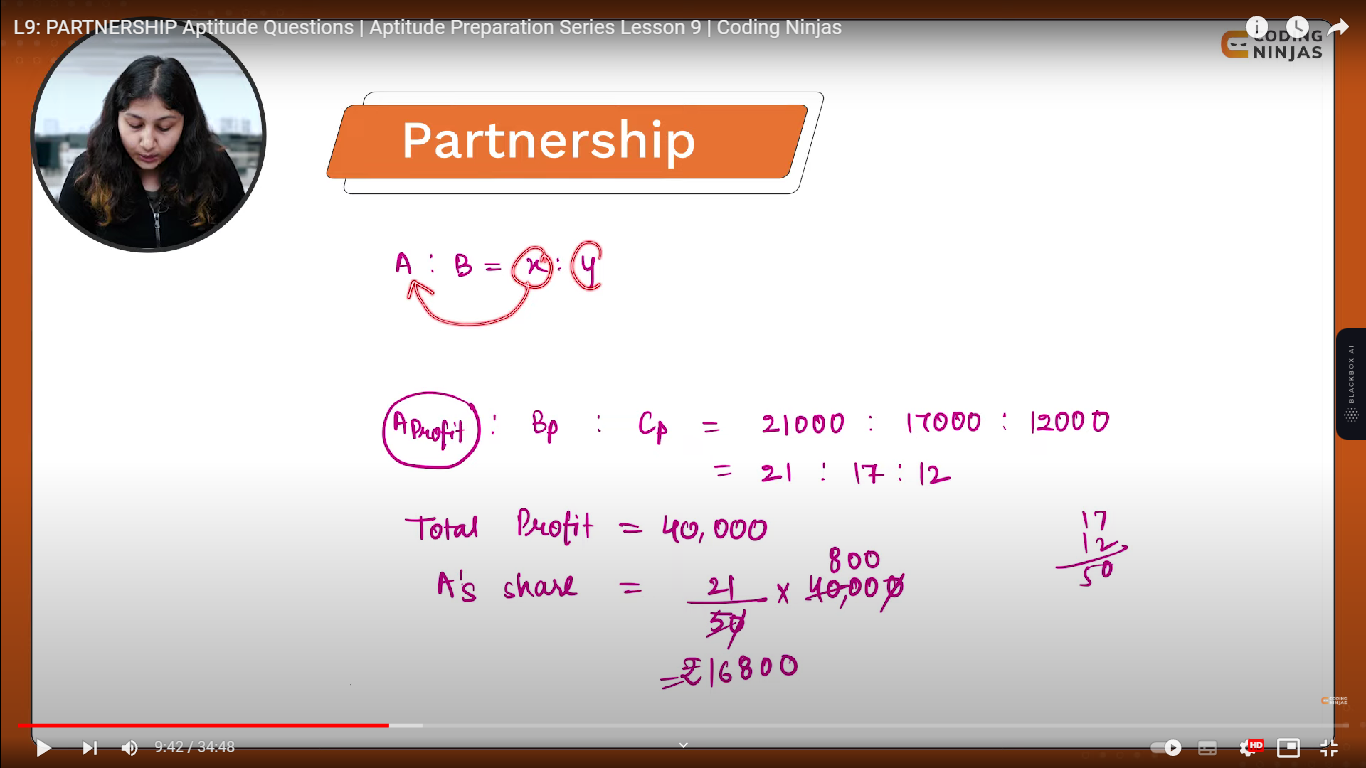 L9: PARTNERSHIP Aptitude Questions | Aptitude Preparation Series Lesson 9 | Coding Ninjas
CODING
NINJAS
Partnership
A : B = x : y
A Profit : Bp : Cp = 21000 : 17000 : 12000
= 21 : 17 : 12
Total Profit = 40,000
17
12
50
800
A's share = 21/50 x 40,000
= ₹16800
BLACKBOX AI
CODING
NINJAS
9:42 / 34:48
HD